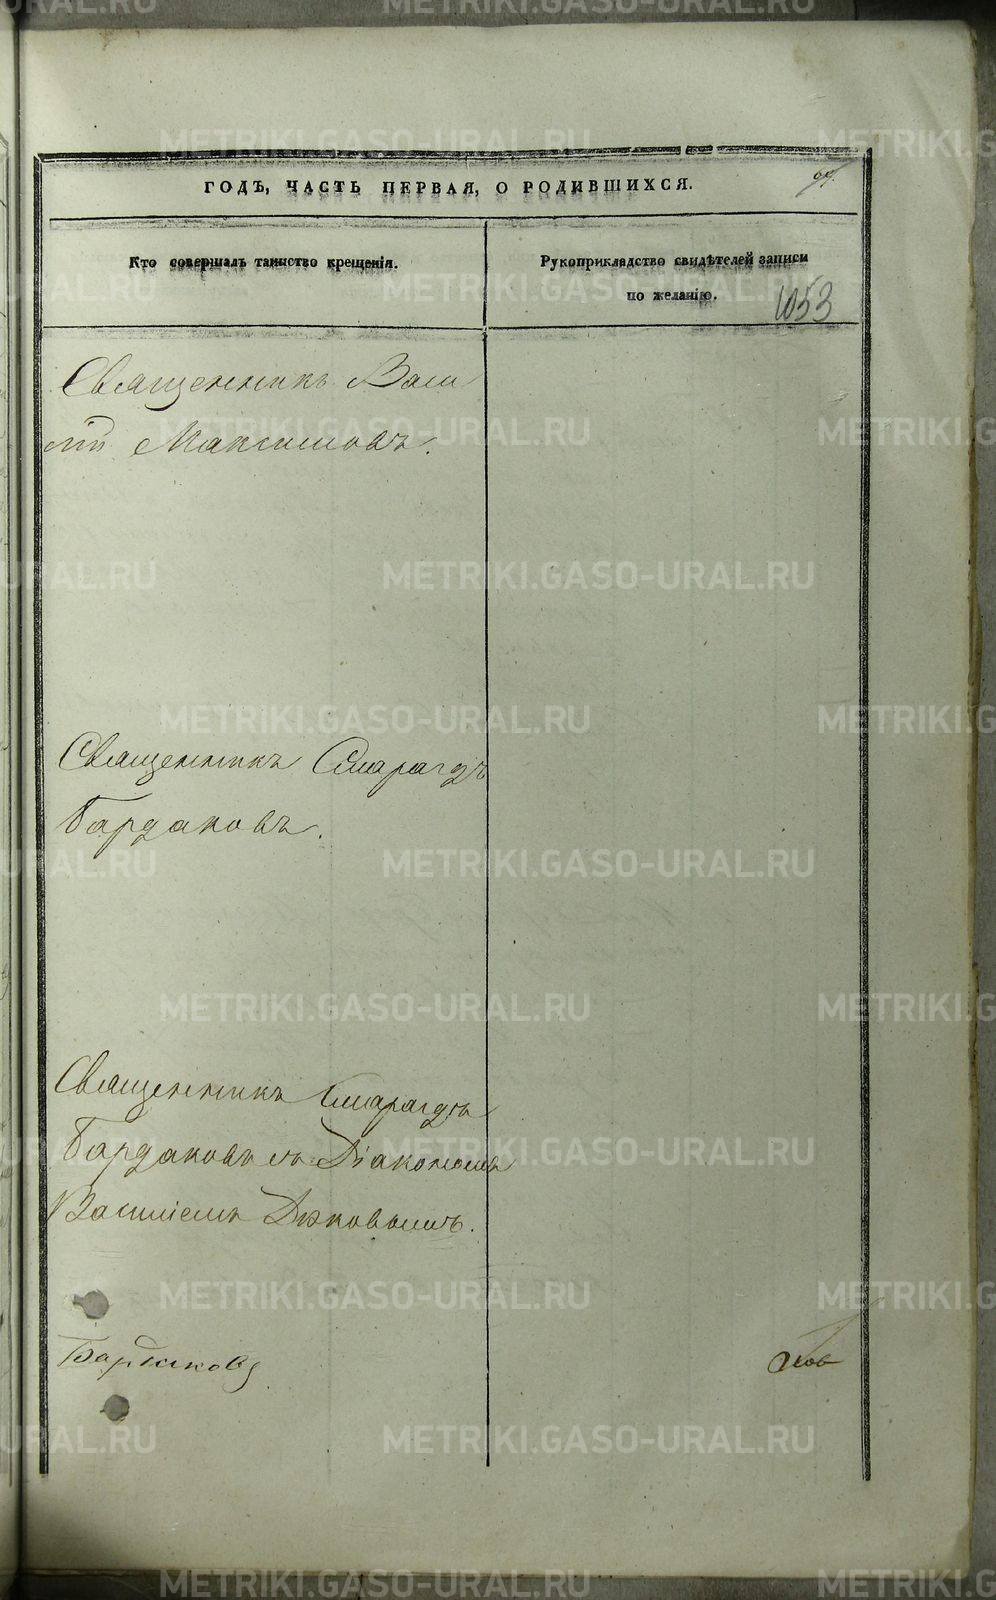 ГОДЪ, ЧАСТЬ ПЕРВАЯ, О РОДИВШИХСЯ.
Кто совершалъ таинство крещенія.
Рукоприкладство свидѣтелей записи
по желанію.
1053
Священникъ Васи
лій Максимовъ.
Священникъ Смарагдъ
Бардаковъ.
Священникъ Смарагдъ
Бардаковъ съ Діакономъ
Василіемъ Дяковымъ.
Бардаковъ
METRIKI.GASO-URAL.RU